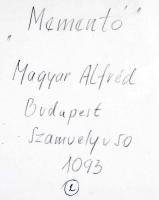 „Mementó"
Magyar Alfréd
Budapest
Szamuely u 50
1093
L